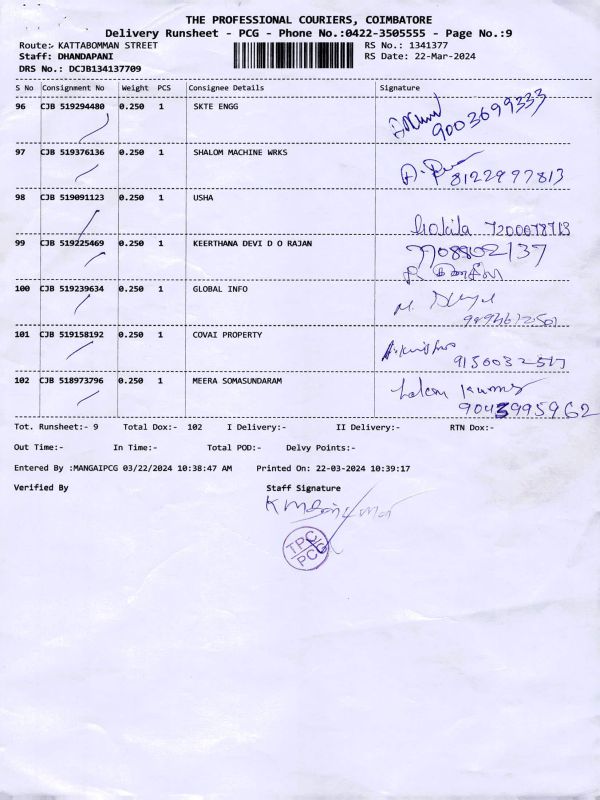 THE PROFESSIONAL COURIERS, COIMBATORE
Delivery Runsheet - PCG - Phone No.:0422-3505555 - Page No.:9
Route:- KATTABOMMAN STREET RS No.: 1341377
Staff: DHANDAPANI RS Date: 22-Mar-2024
DRS No.: DCJB134137709
S No Consignment No Weight PCS Consignee Details Signature
96 CJB 519294480 0.250 1 SKTE ENGG
9003699333
97 CJB 519376136 0.250 1 SHALOM MACHINE WRKS
8122997813
98 CJB 519091123 0.250 1 USHA
Kokila 7200078713
99 CJB 519225469 0.250 1 KEERTHANA DEVI D O RAJAN 7708802137
100 CJB 519239634 0.250 1 GLOBAL INFO
101 CJB 519158192 0.250 1 COVAI PROPERTY
102 CJB 518973796 0.250 1 MEERA SOMASUNDARAM
9043995962
Tot. Runsheet:- 9 Total Dox:- 102 I Delivery:- II Delivery:- RTN Dox:-
Out Time:- In Time:- Total POD:- Delvy Points:-
Entered By :MANGAIPCG 03/22/2024 10:38:47 AM Printed On: 22-03-2024 10:39:17
Verified By Staff Signature
TPC
PCG